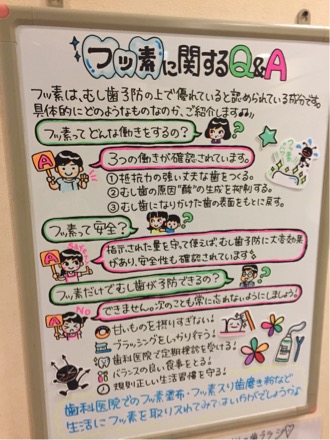 フッ素に関するQ&A
フッ素は、むし歯予防の上で優れていると認められている成分です。
具体的にどのようなものなのか、ご紹介します♪♪
フッ素ってどんな働きをするの?
A
3つの働きが確認されています。
①抵抗力の強い丈夫な歯をつくる。
②むし歯の原因"酸"の生成を抑制する。
③むし歯になりかけた歯の表面をもとに戻す。
フッ素って安全?
A
指示された量を守って使えば、むし歯予防に大変効果
があり、安全性も確認されています。
フッ素だけでむし歯が予防できるの?
A
NO
できません。次のことも常に忘れないようにしましょう!
甘いものを摂りすぎない!
ブラッシングをしっかり行う!
歯科医院で定期検診を受ける!
バランスの良い食事をとる!
規則正しい生活習慣を守る!
歯科医院でのフッ素塗布・フッ素入り歯磨き粉など
生活にフッ素を取り入れてみてはいかがでしょうか♪